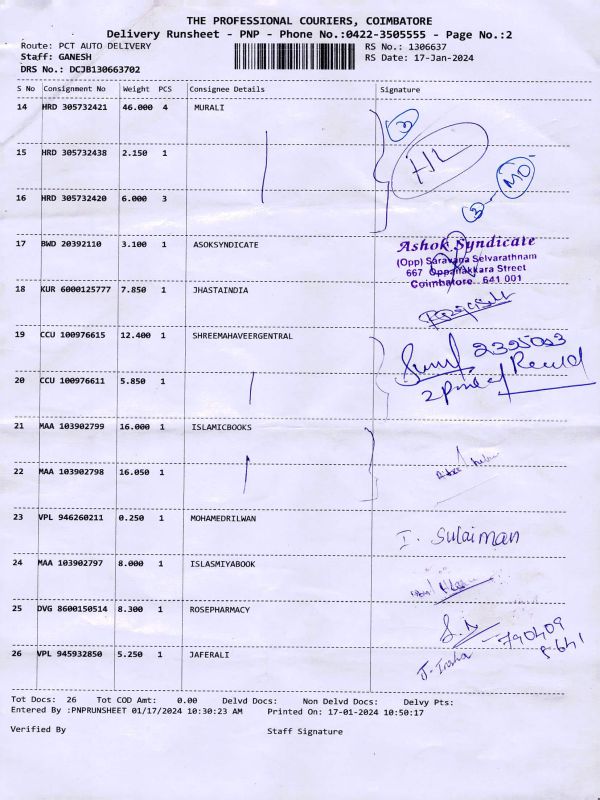 THE PROFESSIONAL COURIERS, COIMBATORE
Delivery Runsheet - PNP - Phone No.:0422-3505555 - Page No.:2
Route: PCT AUTO DELIVERY RS No.: 1306637
Staff: GANESH RS Date: 17-Jan-2024
DRS No.: DCJB130663702
S No Consignment No Weight PCS Consignee Details Signature
14 HRD 305732421 46.000 4 MURALI
3
15 HRD 305732438 2.150 1
MO
16 HRD 305732420 6.000 3
3
17 BWD 20392110 3.100 1 ASOKSYNDICATE
Ashok Syndicate
(Opp) Saravana Selvarathnam
667 Oppanakkara Street
Coimbatore 641 001
18 KUR 6000125777 7.850 1 JHASTAINDIA
19 CCU 100976615 12.400 1 SHREEMAHAVEERGENTRAL
20 CCU 100976611 5.850 1
21 MAA 103902799 16.000 1 ISLAMICBOOKS
22 MAA 103902798 16.050 1
23 VPL 946260211 0.250 1 MOHAMEDRILWAN
I. Sulaiman
24 MAA 103902797 8.000 1 ISLASMIYABOOK
25 DVG 8600150514 8.300 1 ROSEPHARMACY
26 VPL 945932850 5.250 1 JAFERALI
Tot Docs: 26 Tot COD Amt: 0.00 Delvd Docs: Non Delvd Docs: Delvy Pts:
Entered By :PNPRUNSHEET 01/17/2024 10:30:23 AM Printed On: 17-01-2024 10:50:17
Verified By Staff Signature